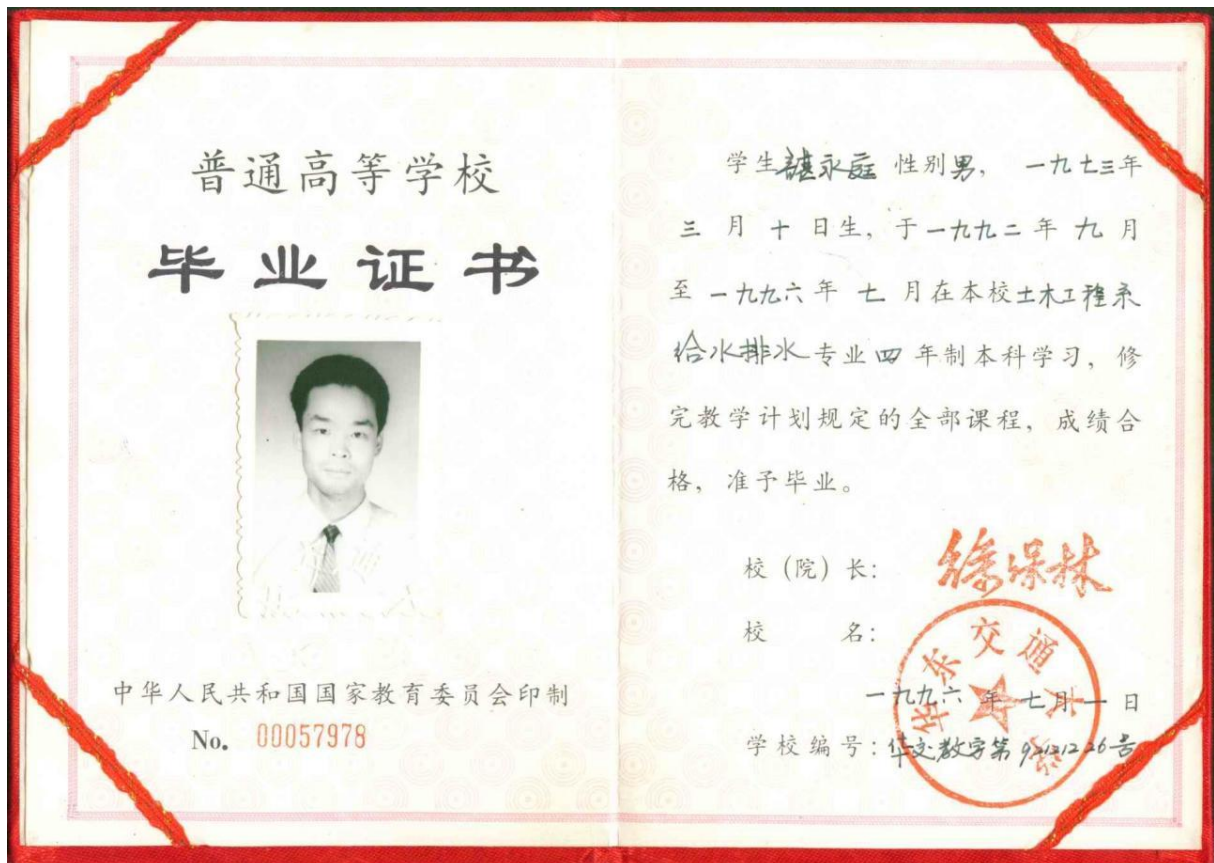 普通高等学校
毕业证书
中华人民共和国国家教育委员会印制
No. 00057978
学生諶永庭 性别男, 一九七三年
三月十日生, 于一九九二年九月
至一九九六年七月在本校土木工程系
给水排水专业四年制本科学习, 修
完教学计划规定的全部课程, 成绩合
格, 准予毕业。
校(院)长:
校 名:
华东交通大学
一九九六年七月一日
学校编号: 华交教字第92121226号